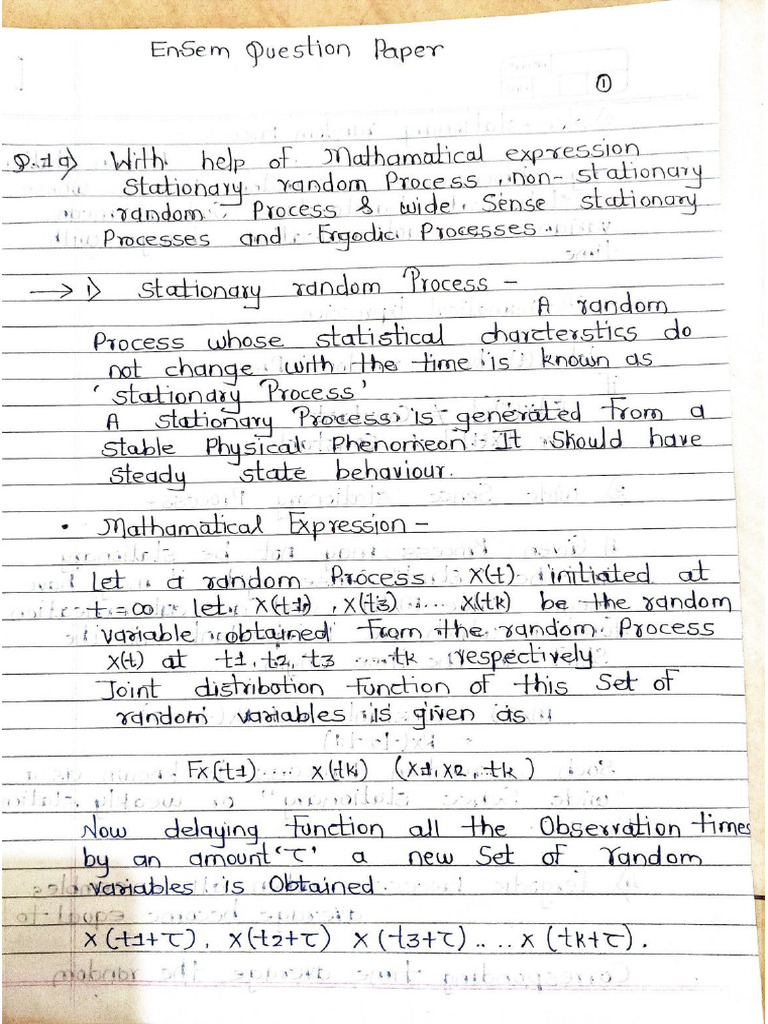 EnSem Question Paper
1
Q.1 a) With help of Mathamatical expression
Stationary random Process, non-stationary
random Process & wide Sense stationary
Processes and Ergodic Processes.
→ i) Stationary random Process -
A random
Process whose statistical charcterstics do
not change with the time is known as
'stationary Process'
A stationary Process is generated from a
stable Physical Phenomeon. It Should have
steady state behaviour.
• Mathamatical Expression -
Let a random Process X(t) initiated at
t = ∞ let X(t1), X(t3) .... X(tk) be the random
variable obtained From the random Process
X(t) at t1, t2, t3 ....tk respectively
Joint distribotion Function of this Set of
random variables is given as
Fx(t1) .... x(tk) (x1, x2, tk)
Now delaying function all the Observation times
by an amount 'τ' a new Set of random
variables is Obtained.
X(t1+τ), X(t2+τ) X(t3+τ).. .. X (tk+τ).